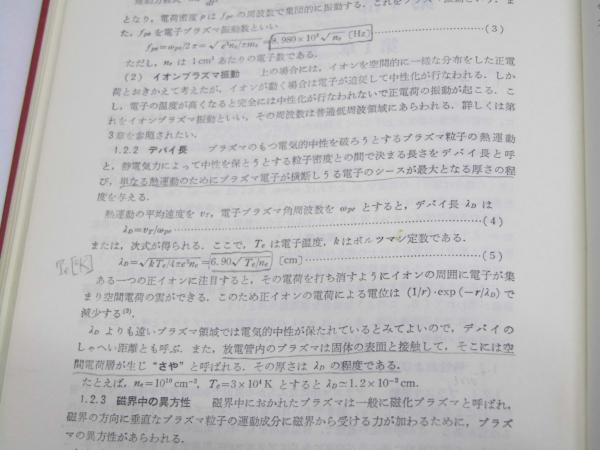 となり，電荷密度ρは fpe の周波数で集団的に振動する．これをプラズ
た．fpe を電子プラズマ振動数といい
fpe=ωpe/2π=√e²ne/πme=8.980×10³√ne [Hz]……(3)
ただし，ne は 1cm³ あたりの電子数である．
(2) イオンプラズマ振動　上の場合には，イオンを空間的に一様な分布をした正電
荷とおきかえて考えたが，イオンが動く場合は電子が追従して中性化が行なわれる．しか
し，電子の温度が高くなると完全には中性化が行なわれないで正電荷の振動が起こる．こ
れをイオンプラズマ振動といい，その周波数は普通低周波領域にあらわれる．詳しくは第
3章を参照されたい．
1.2.2 デバイ長　プラズマのもつ電気的中性を破ろうとするプラズマ粒子の熱運動
と，静電気力によって中性を保とうとする粒子密度との間で決まる長さをデバイ長と呼
び，単なる熱運動のためにプラズマ電子が横断しうる電子のシースが最大となる厚さの程
度を与える．
熱運動の平均速度を vT，電子プラズマ角周波数を ωpe とすると，デバイ長 λD は
λD=vT/ωpe……(4)
または，次式が得られる．ここで，Te は電子温度，k はボルツマン定数である．
Te[°K]
λD=√kTe/4πe²ne=6.90√Te/ne [cm]……(5)
ある一つの正イオンに注目すると，その電荷を打ち消すようにイオンの周囲に電子が集
まり空間電荷の雲ができる．このため正イオンの電荷による電位は (1/r)·exp(−r/λD) で
減少する⁽³⁾．
λD よりも遠いプラズマ領域では電気的中性が保たれているとみてよいので，デバイの
しゃへい距離とも呼ぶ．また，放電管内のプラズマは固体の表面と接触して，そこには空
間電荷層が生じ“さや”と呼ばれる．その厚さは λD の程度である．
たとえば，ne=10¹⁰cm⁻³，Te=3×10⁴K とすると λD≃1.2×10⁻²cm．
1.2.3 磁界中の異方性　磁界中におかれたプラズマは一般に磁化プラズマと呼ばれ，
磁界の方向に垂直なプラズマ粒子の運動成分に磁界から受ける力が加わるために，プラズ
マの異方性があらわれる．